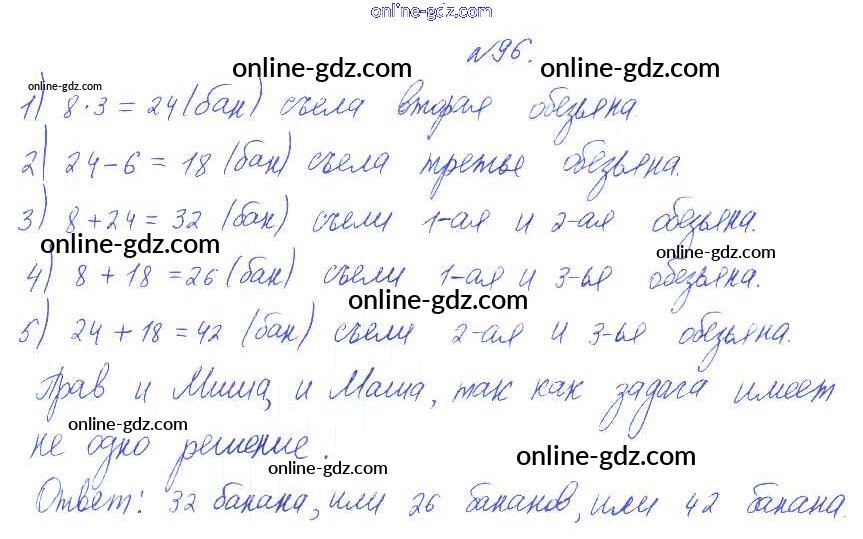 online-gdz.com
№96.
online-gdz.com online-gdz.com
online-gdz.com
1) 8·3=24(бан) съела вторая обезьяна.
2) 24-6=18 (бан) съела третье обезьяна.
3) 8+24=32 (бан) съели 1-ая и 2-ая обезьяна.
online-gdz.com online-gdz.com
4) 8+18=26(бан) съели 1-ая и 3-ья обезьяна.
online-gdz.com
5) 24+18=42 (бан) съели 2-ая и 3-ья обезьяна.
Прав и Миша, и Маша, так как задача имеет
online-gdz.com
не одно решение.
online-gdz.com online-gdz.com
Ответ: 32 банана, или 26 бананов, или 42 банана.